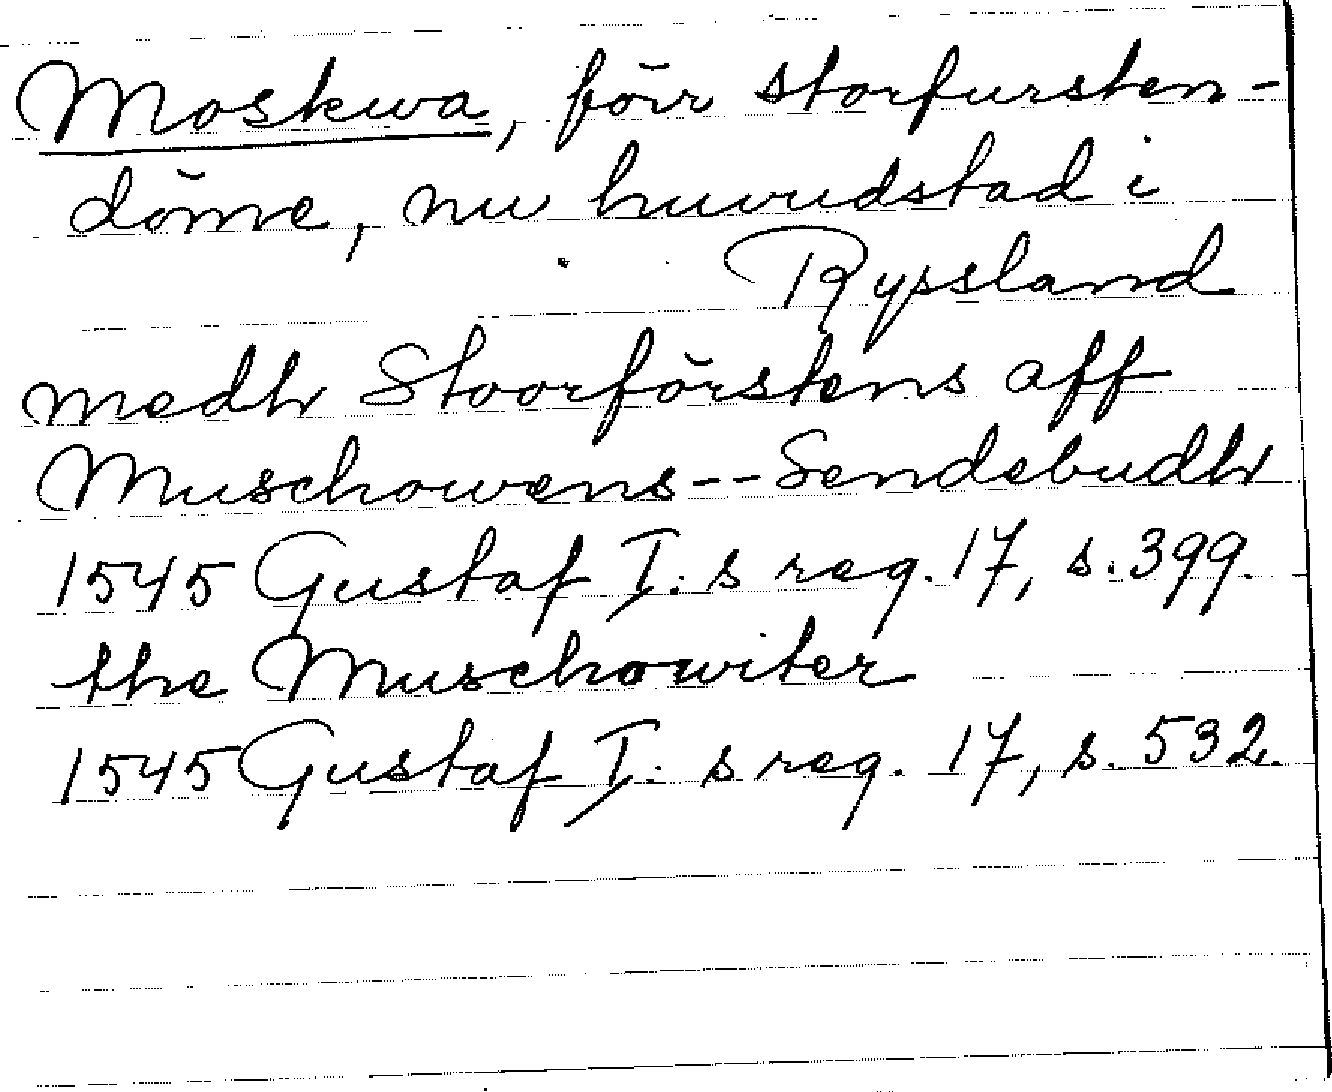 Moskwa, förr storfursten-
döme, nu huvudstad i
Ryssland
medh Stoorförstens aff
Muschowens -- Sendebudh
1545 Gustaf I:s reg. 17, s. 399.
the Muschowiter
1545 Gustaf I:s reg. 17, s. 532.